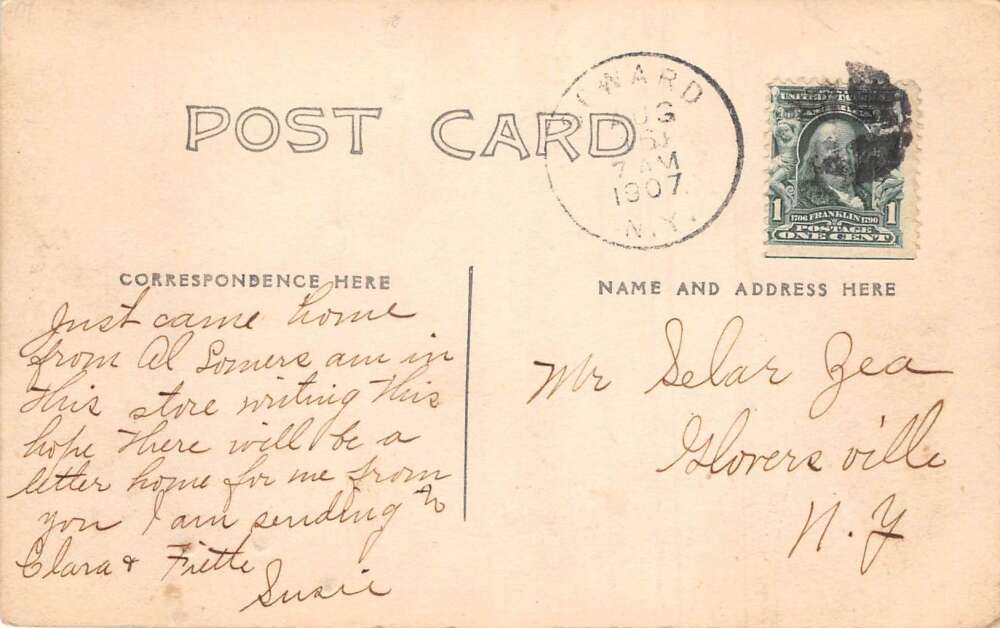 POST CARD
WARD
AUG
7 AM
1907
N.Y.
UNITED STATES
OF AMERICA
1 1
1706 FRANKLIN 1790
POSTAGE
ONE CENT
CORRESPONDENCE HERE
NAME AND ADDRESS HERE
Just came home
from Al Somers am in
this store writing this
hope there will be a
letter home for me from
you I am sending to
Clara & Fiette
Susie
Mr Selar Zea
Gloversville
N.Y